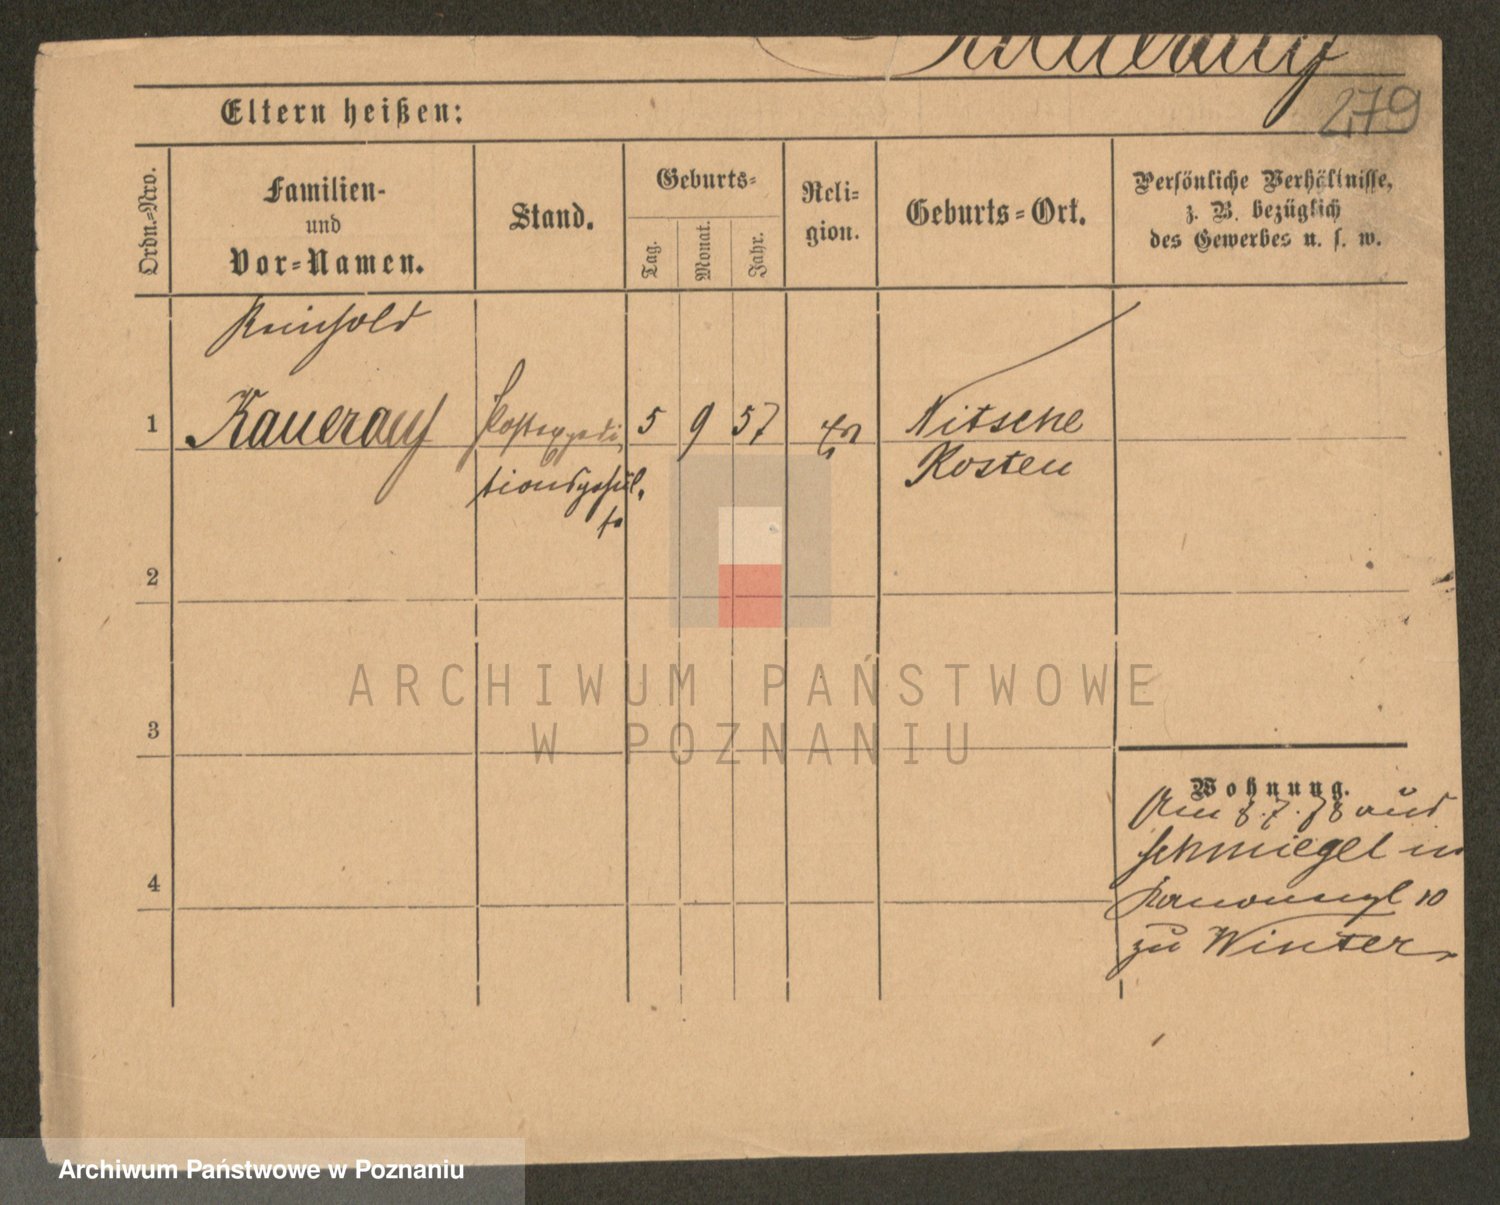 Kauerauf
279
Eltern heißen:
Ordn.-Nro.
Familien-
und
Vor-Namen.
Stand.
Geburts-
Tag.
Monat.
Jahr.
Reli-
gion.
Geburts-Ort.
Persönliche Verhältnisse,
z. B. bezüglich
des Gewerbes u. s. w.
Reinhold
1 Kauerauf Postexpedi 5 9 57 Ev Nitsche
tionsgehül. Kosten
fe
2
3
4
Wohnung.
Am 8.7.78 aus
Schmiegel in
10
zu Winter
ARCHIWUM PAŃSTWOWE
W POZNANIU
Archiwum Państwowe w Poznaniu